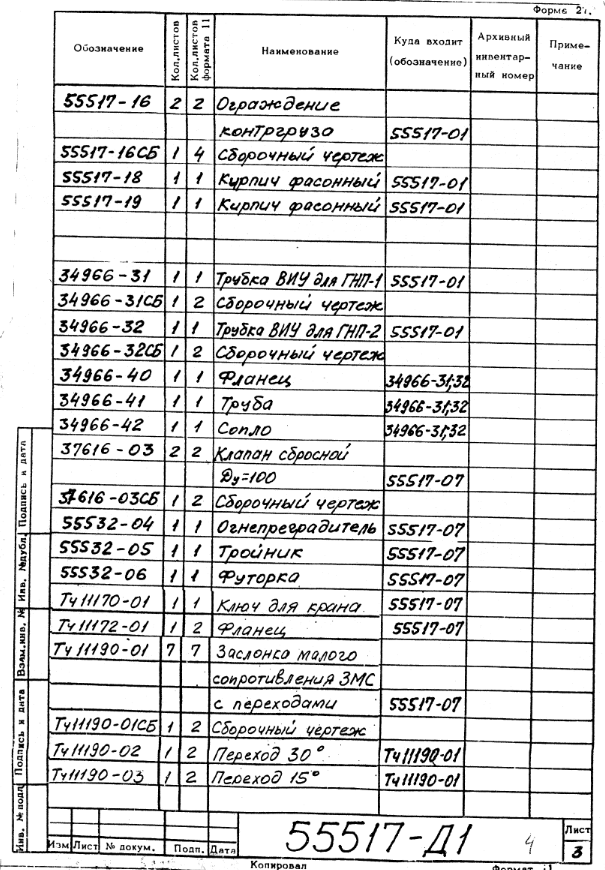 Форма 2г.
Обозначение Кол.листов Кол.листов формата 11 Наименование Куда входит (обозначение) Архивный инвентар-ный номер Приме-чание
55517-16 2 2 Ограждение
контргруза 55517-01
55517-16СБ 1 4 Сборочный чертеж
55517-18 1 1 Кирпич фасонный 55517-01
55517-19 1 1 Кирпич фасонный 55517-01
34966-31 1 1 Трубка ВИУ для ГНП-1 55517-01
34966-31СБ 1 2 Сборочный чертеж
34966-32 1 1 Трубка ВИУ для ГНП-2 55517-01
34966-32СБ 1 2 Сборочный чертеж
34966-40 1 1 Фланец 34966-31;32
34966-41 1 1 Труба 34966-31;32
34966-42 1 1 Сопло 34966-31;32
37616-03 2 2 Клапан сбросной
Ду=100 55517-07
37616-03СБ 1 2 Сборочный чертеж
55532-04 1 1 Огнепреградитель 55517-07
55532-05 1 1 Тройник 55517-07
55532-06 1 1 Футорка 55517-07
Тч11170-01 1 1 Ключ для крана 55517-07
Тч11172-01 1 2 Фланец 55517-07
Тч11190-01 7 7 Заслонка малого
сопротивления ЗМС
с переходами 55517-07
Тч11190-01СБ 1 2 Сборочный чертеж
Тч11190-02 1 2 Переход 30° Тч11190-01
Тч11190-03 1 2 Переход 15° Тч11190-01
Инв. № подл Подпись и дата Взам.инв. № Инв. №дубл. Подпись и дата
55517-Д1 4
Лист
3
Изм Лист № докум. Подп. Дата
Копировал Формат 11